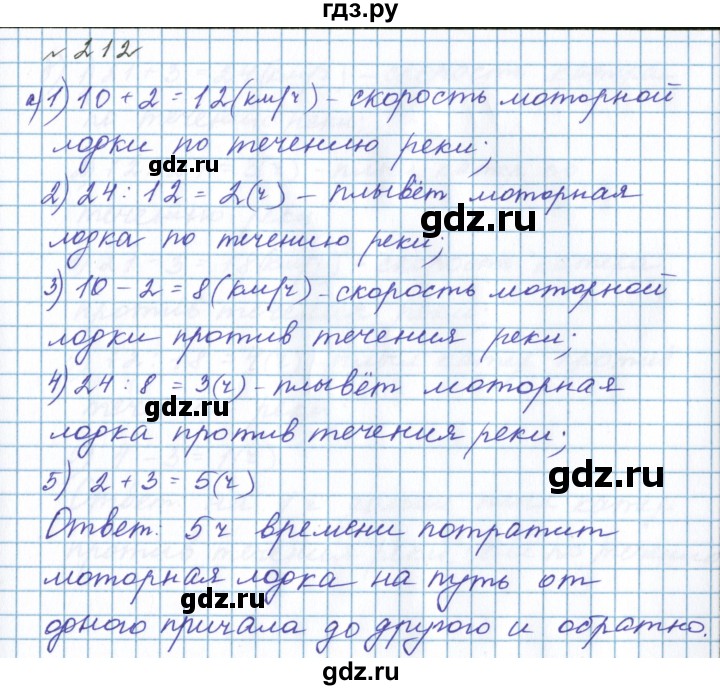 гдз.ру
№ 212
а) 1) 10 + 2 = 12 (км/ч) – скорость моторной
лодки по течению реки;
gdz.ru
2) 24 : 12 = 2 (ч) – плывёт моторная
gdz.ru
лодка по течению реки;
3) 10 – 2 = 8 (км/ч) – скорость моторной
лодки против течения реки;
4) 24 : 8 = 3 (ч) – плывёт моторная
gdz.ru
лодка против течения реки;
5) 2 + 3 = 5 (ч)
gdz.ru
Ответ: 5 ч времени потратит
моторная лодка на путь от
gdz.ru
одного причала до другого и обратно.
gdz.ru